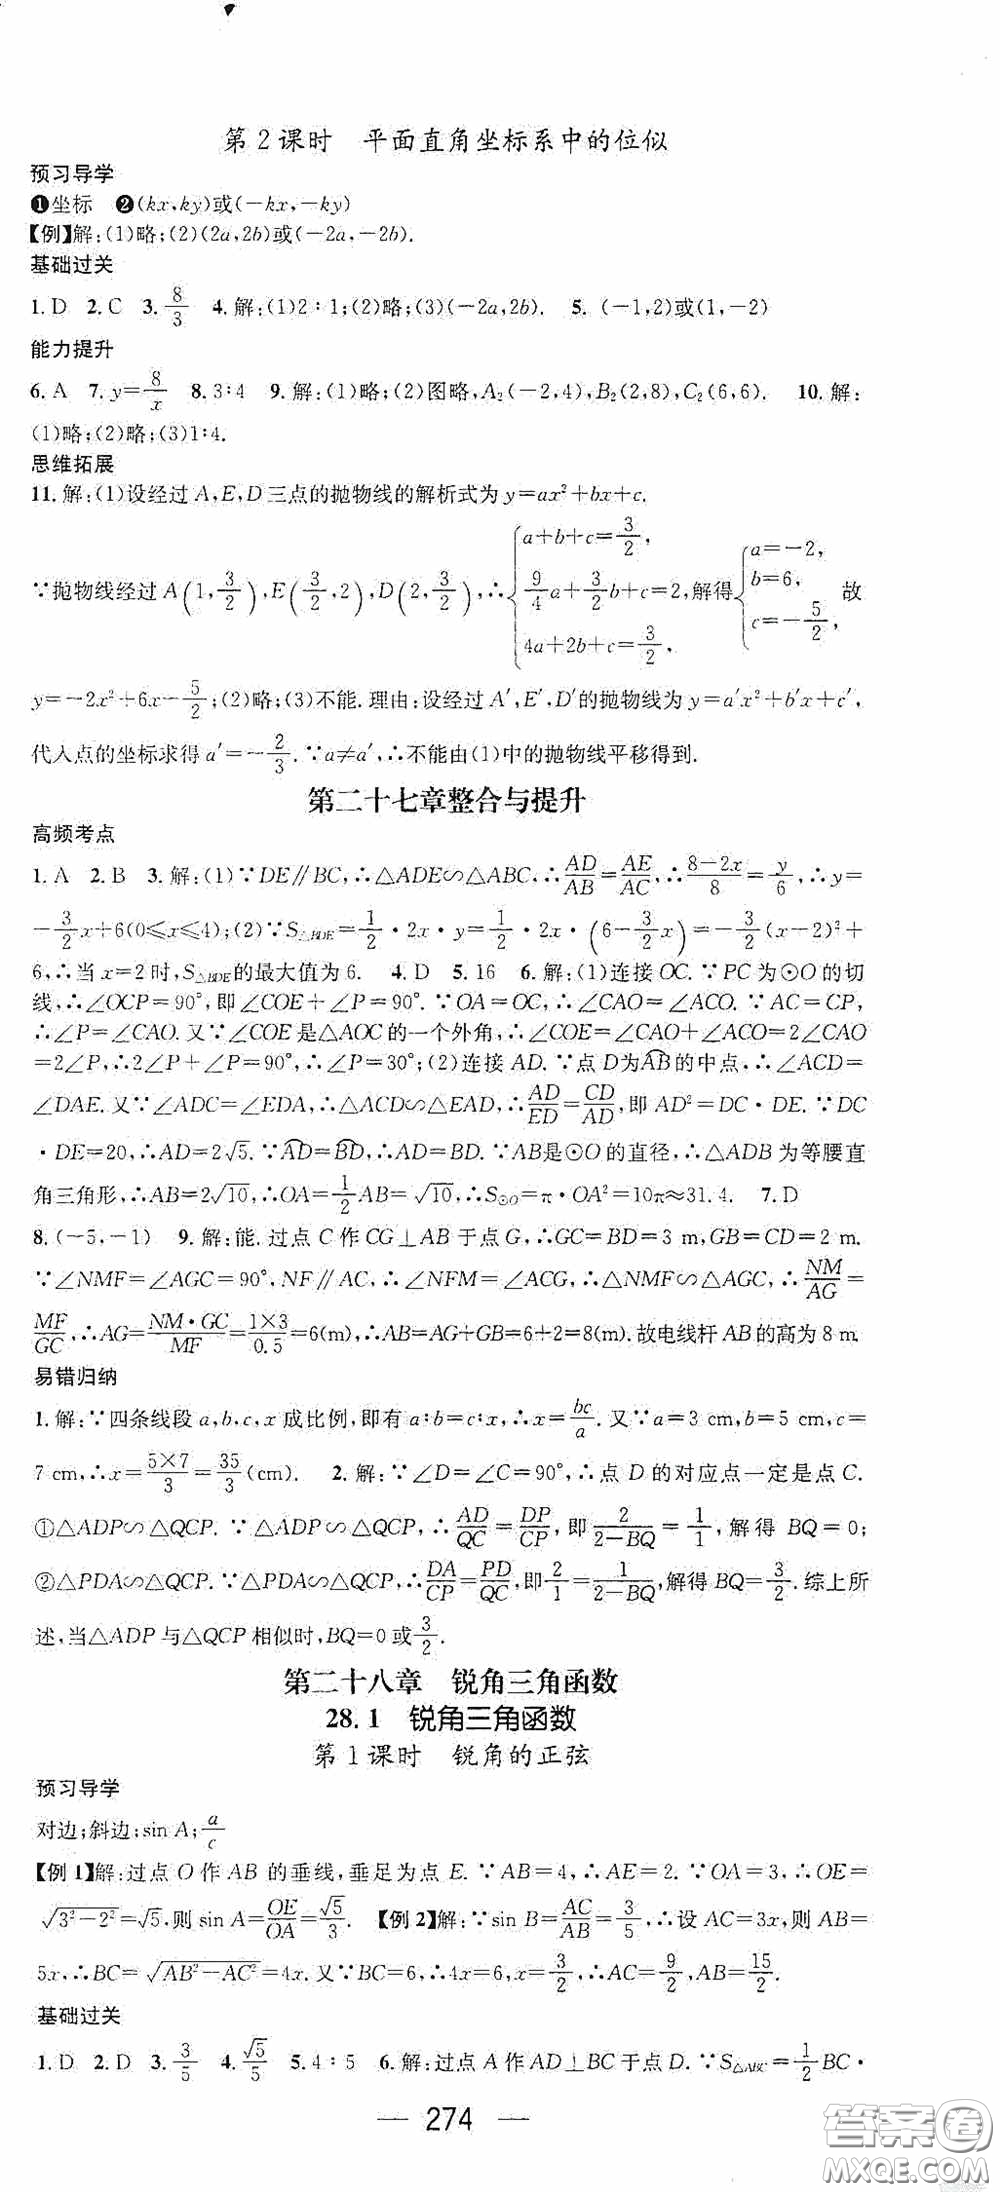 第2课时　平面直角坐标系中的位似
预习导学
❶坐标　❷(kx,ky)或(－kx,－ky)
【例】解:(1)略;(2)(2a,2b)或(－2a,－2b).
基础过关
1.D　2.C　3. 8/3　4.解:(1)2∶1;(2)略;(3)(－2a,2b).　5.(－1,2)或(1,－2)
能力提升
6.A　7. y=8/x　8.3∶4　9.解:(1)略;(2)图略,A₂(－2,4),B₂(2,8),C₂(6,6).　10.解:
(1)略;(2)略;(3)1∶4.
思维拓展
11.解:(1)设经过A,E,D三点的抛物线的解析式为y=ax²+bx+c.
∵抛物线经过A(1,3/2),E(3/2,2),D(2,3/2),∴{a+b+c=3/2, 9/4a+3/2b+c=2, 4a+2b+c=3/2, 解得{a=－2, b=6, c=－5/2, 故
y=－2x²+6x－5/2;(2)略;(3)不能.理由:设经过A′,E′,D′的抛物线为y=a′x²+b′x+c′,
代入点的坐标求得a′=－2/3.∵a≠a′,∴不能由(1)中的抛物线平移得到.
第二十七章整合与提升
高频考点
1.A　2.B　3.解:(1)∵DE∥BC,∴△ADE∽△ABC,∴AD/AB=AE/AC,∴(8－2x)/8=y/6,∴y=
－3/2x+6(0≤x≤4);(2)∵S△BDE=1/2·2x·y=1/2·2x·(6－3/2x)=－3/2(x－2)²+
6,∴当x=2时,S△BDE的最大值为6.　4.D　5.16　6.解:(1)连接OC.∵PC为⊙O的切
线,∴∠OCP=90°,即∠COE+∠P=90°.∵OA=OC,∴∠CAO=∠ACO.∵AC=CP,
∴∠P=∠CAO.又∵∠COE是△AOC的一个外角,∴∠COE=∠CAO+∠ACO=2∠CAO
=2∠P,∴2∠P+∠P=90°,∴∠P=30°;(2)连接AD.∵点D为A͡B的中点,∴∠ACD=
∠DAE.又∵∠ADC=∠EDA,∴△ACD∽△EAD,∴AD/ED=CD/AD,即AD²=DC·DE.∵DC
·DE=20,∴AD=2√5.∵A͡D=B͡D,∴AD=BD.∵AB是⊙O的直径,∴△ADB为等腰直
角三角形,∴AB=2√10,∴OA=1/2AB=√10,∴S⊙O=π·OA²=10π≈31.4.　7.D
8.(－5,－1)　9.解:能.过点C作CG⊥AB于点G,∴GC=BD=3 m,GB=CD=2 m.
∵∠NMF=∠AGC=90°,NF∥AC,∴∠NFM=∠ACG,∴△NMF∽△AGC,∴NM/AG=
MF/GC,∴AG=NM·GC/MF=1×3/0.5=6(m),∴AB=AG+GB=6+2=8(m).故电线杆AB的高为8 m.
易错归纳
1.解:∵四条线段a,b,c,x成比例,即有a∶b=c∶x,∴x=bc/a.又∵a=3 cm,b=5 cm,c=
7 cm,∴x=5×7/3=35/3(cm).　2.解:∵∠D=∠C=90°,∴点D的对应点一定是点C.
①△ADP∽△QCP.∵△ADP∽△QCP,∴AD/QC=DP/CP,即2/(2－BQ)=1/1,解得BQ=0;
②△PDA∽△QCP.∵△PDA∽△QCP,∴DA/CP=PD/QC,即2/1=1/(2－BQ),解得BQ=3/2.综上所
述,当△ADP与△QCP相似时,BQ=0或3/2.
第二十八章　锐角三角函数
28.1　锐角三角函数
第1课时　锐角的正弦
预习导学
对边;斜边;sin A;a/c
【例1】解:过点O作AB的垂线,垂足为点E.∵AB=4,∴AE=2.∵OA=3,∴OE=
√(3²－2²)=√5,则sin A=OE/OA=√5/3.　【例2】解:∵sin B=AC/AB=3/5,∴设AC=3x,则AB=
5x,∴BC=√(AB²－AC²)=4x.又∵BC=6,∴4x=6,x=3/2,∴AC=9/2,AB=15/2.
基础过关
1.D　2.D　3. 3/5　4. √5/5　5.4∶5　6.解:过点A作AD⊥BC于点D.∵S△ABC=1/2BC·
— 274 —
答案圈
MXQE.COM